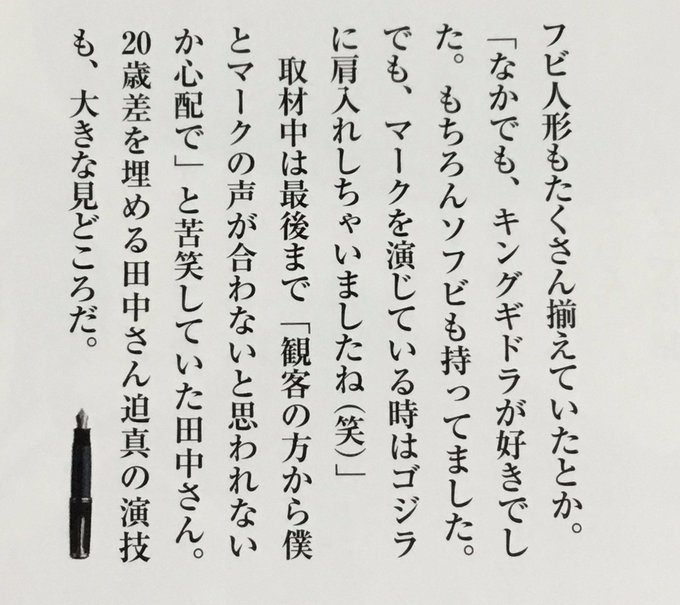 フビ人形もたくさん揃えていたとか。
「なかでも、キングギドラが好きでし
た。もちろんソフビも持ってました。
でも、マークを演じている時はゴジラ
に肩入れしちゃいましたね(笑)」
取材中は最後まで「観客の方から僕
とマークの声が合わないと思われない
か心配で」と苦笑していた田中さん。
20歳差を埋める田中さん迫真の演技
も、大きな見どころだ。